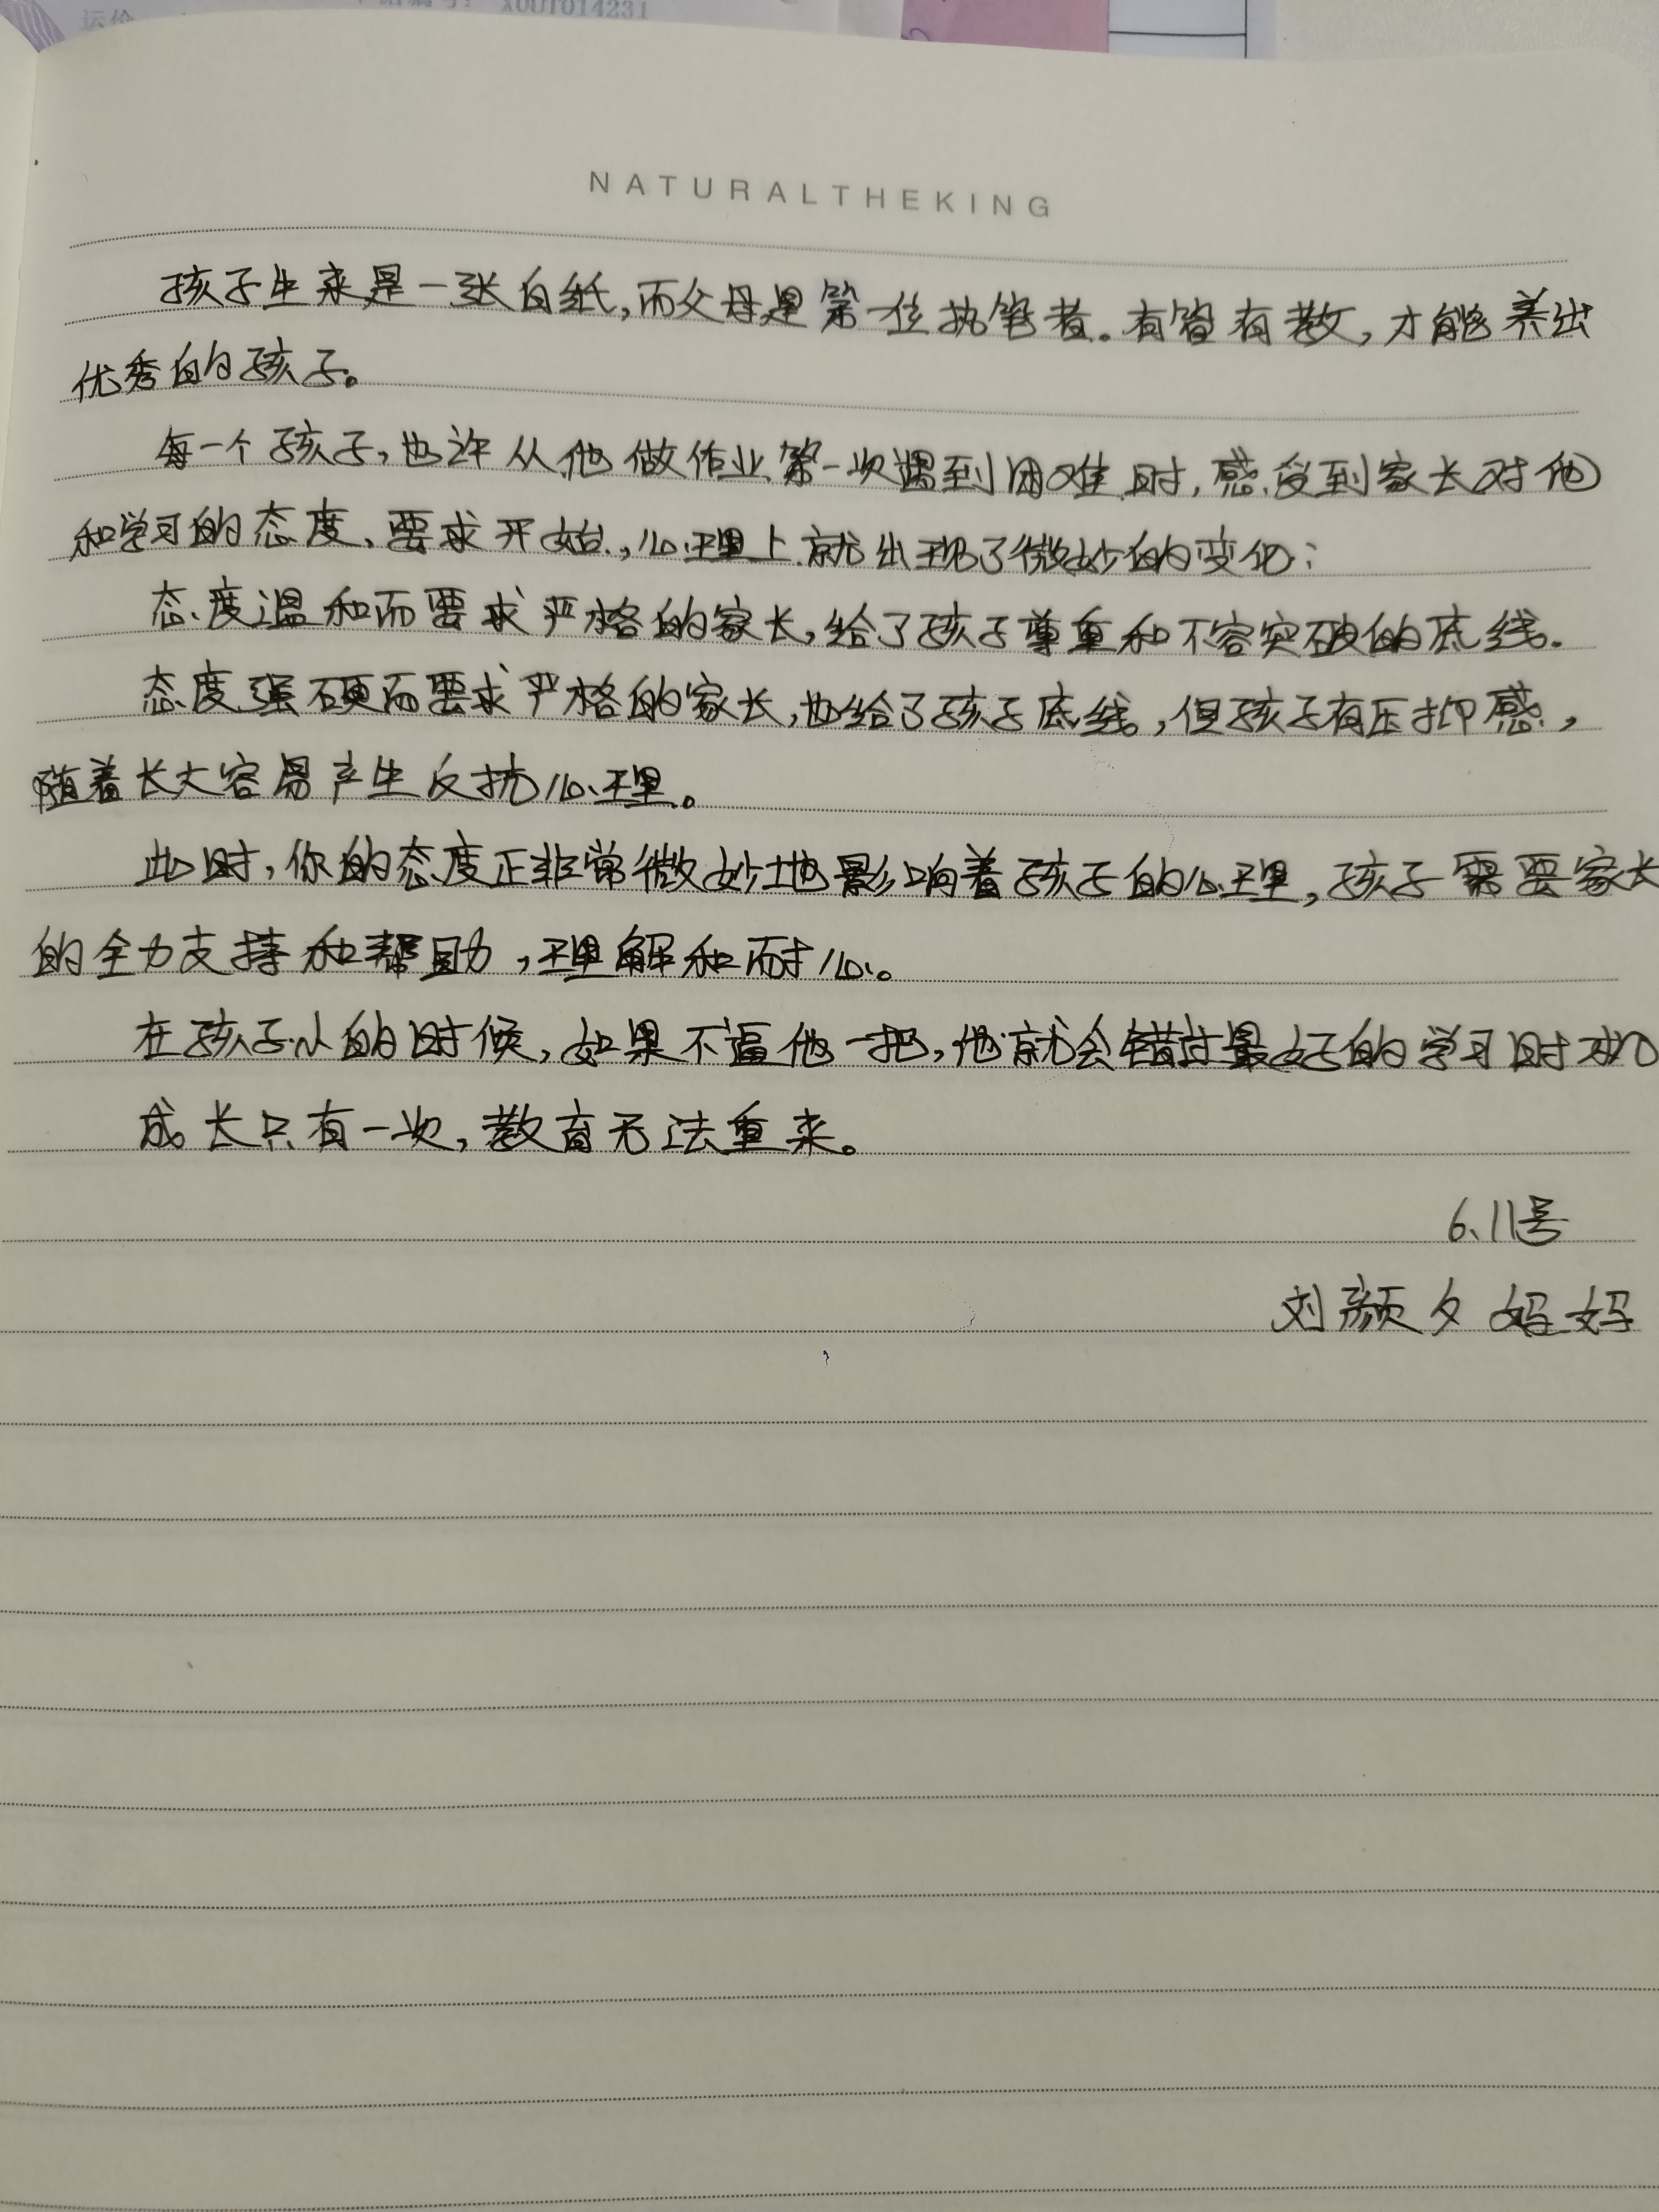 X00T014231
NATURALTHEKING
孩子生来是一张白纸,而父母是第一位执笔者。有管有教,才能养出
优秀的孩子。
每一个孩子,也许从他做作业第一次遇到困难时,感受到家长对他
和学习的态度、要求开始,心理上就出现了微妙的变化:
态度温和而要求严格的家长,给了孩子尊重和不容突破的底线.
态度强硬而要求严格的家长,也给了孩子底线,但孩子有压抑感,
随着长大容易产生反抗心理。
此时,你的态度正非常微妙地影响着孩子的心理,孩子需要家长
的全力支持和帮助,理解和耐心。
在孩子小的时候,如果不逼他一把,他就会错过最好的学习时机
成长只有一次,教育无法重来。
6、11号
刘颜夕妈妈